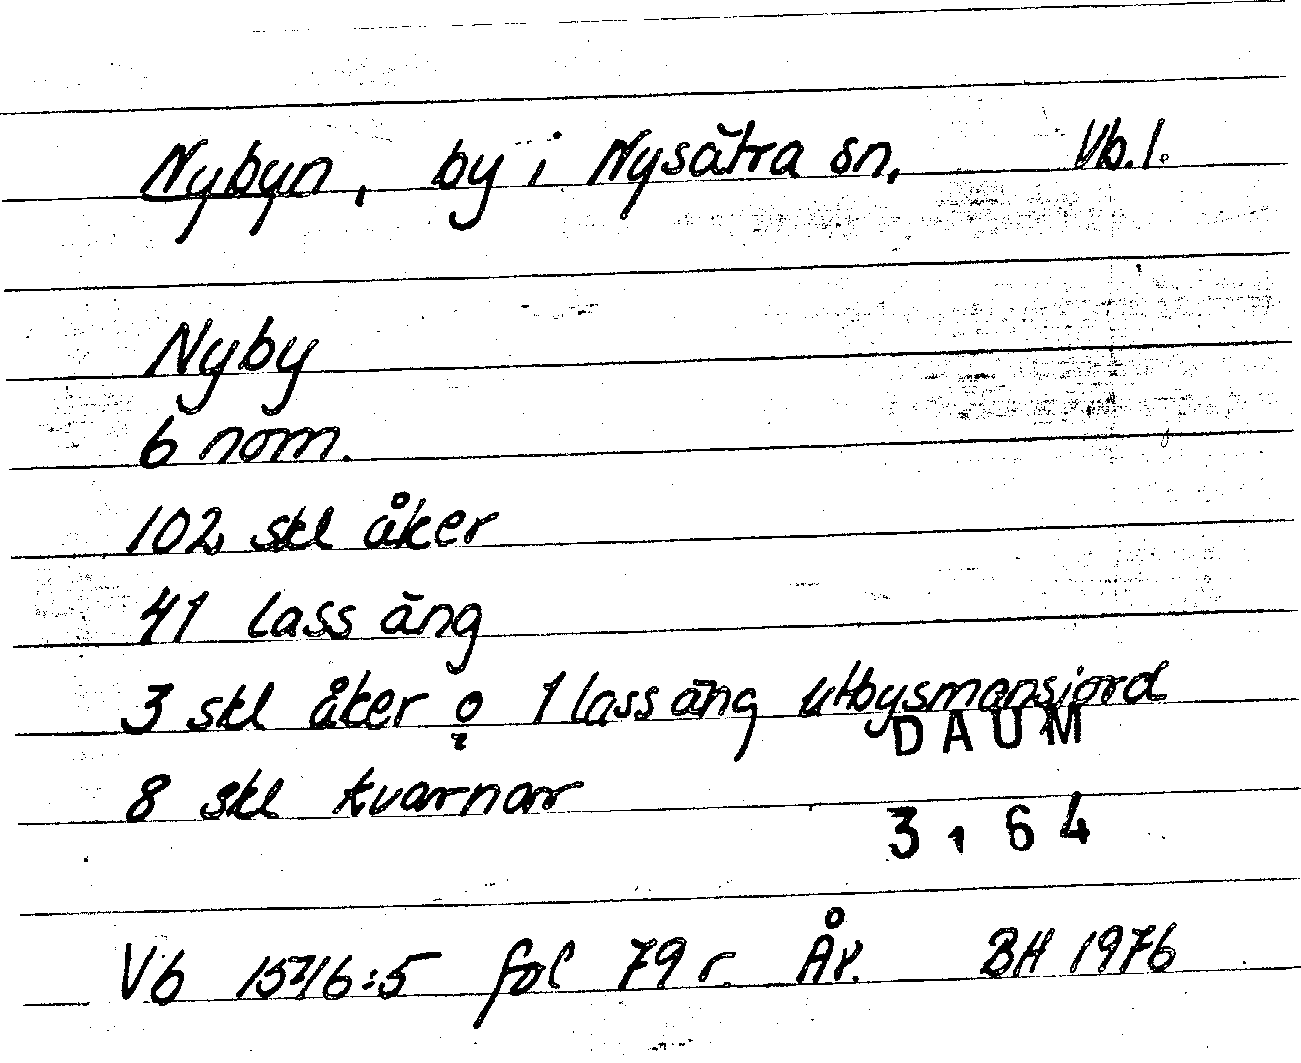 Nybyn, by i Nysätra sn, Vb.l.
Nyby
6 nom.
102 skl åker
41 lass äng
3 skl åker o 1 lass äng utbysmansjord
DAUM
8 skl kvarnar
3164
Vb 1546:5 fol 79 r. År. BH 1976